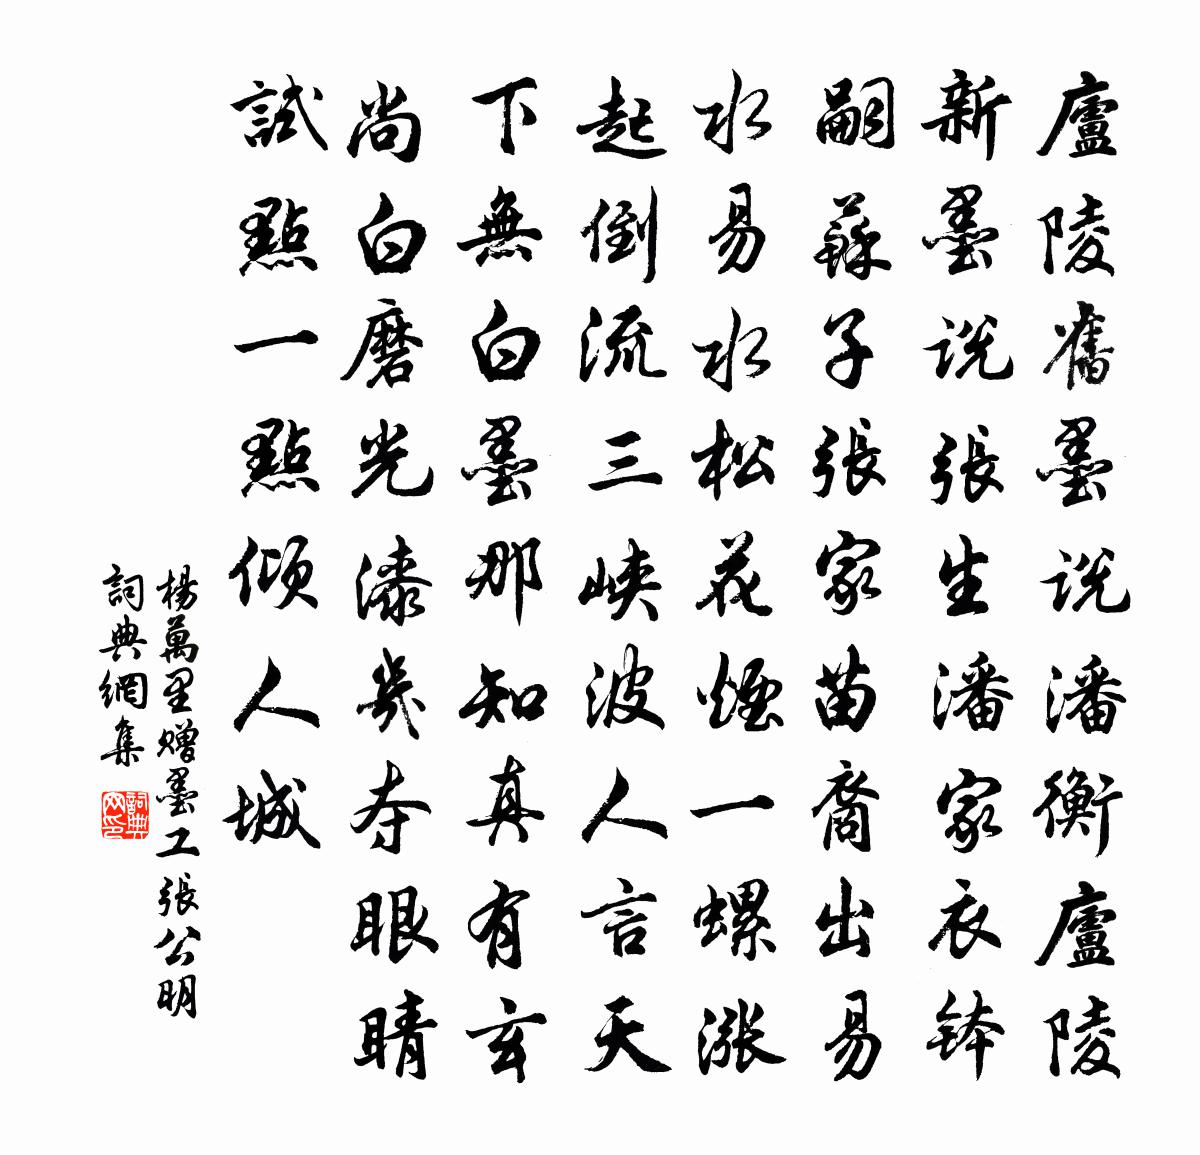 廬陵舊墨说潘衡廬陵
新墨说張生潘家衣钵
嗣蘇子張家苗裔出易
水易水松花煙一螺漲
起倒流三峡波人言天
下無白墨那知真有玄
尚白磨光漆幾夺眼睛
試點一點倾人城
楊萬里赠墨工張公明
詞典網集
詞典
网印